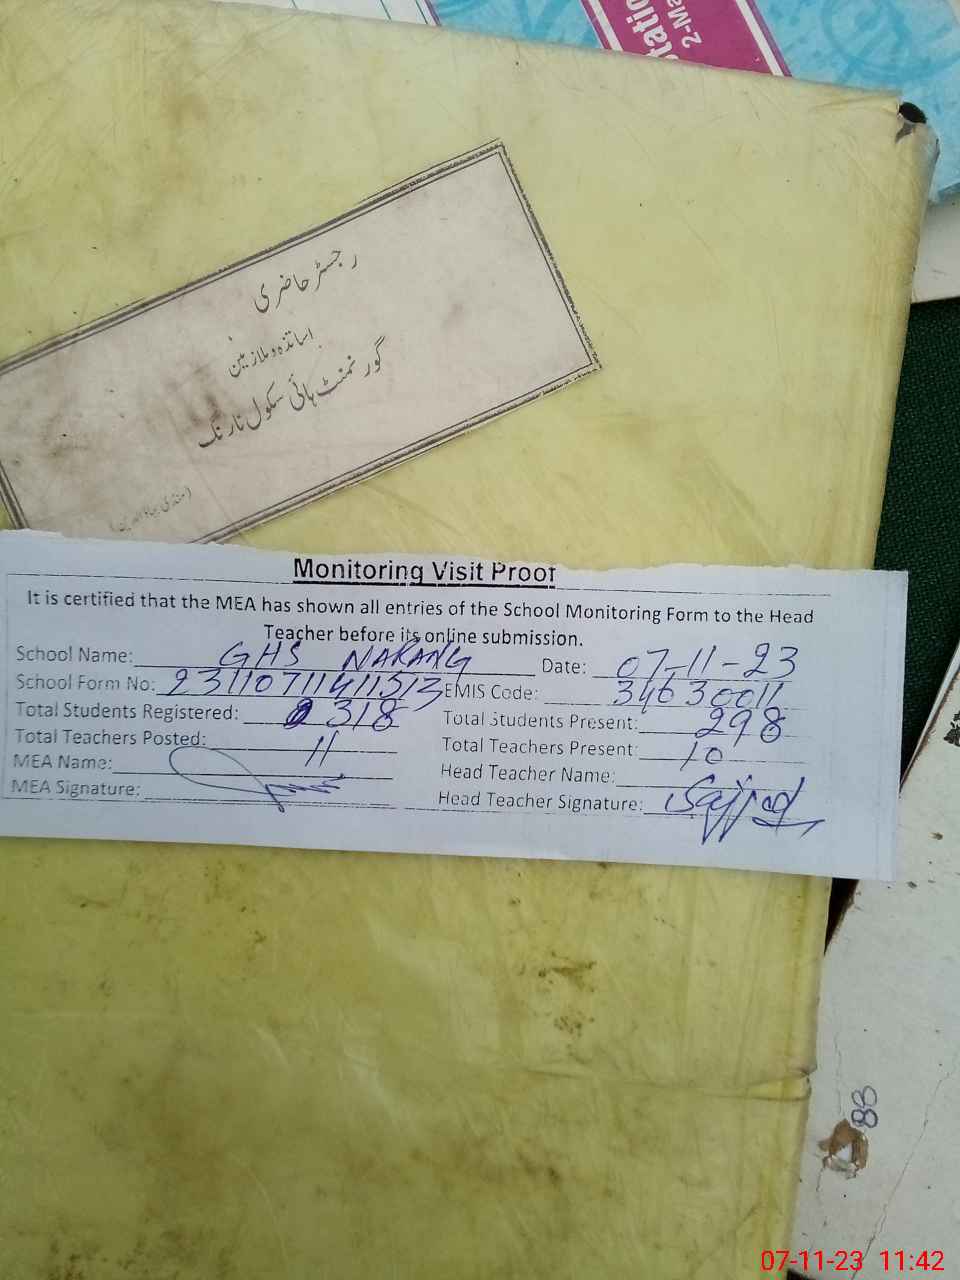 tatio
2-Ma
رجسٹر حاضری
اساتذہ و ملازمین
گورنمنٹ ہائی سکول نارنگ
(منڈی بہاؤالدین)
Monitoring Visit Proof
It is certified that the MEA has shown all entries of the School Monitoring Form to the Head
Teacher before its online submission.
School Name: GHS NARANG Date: 07-11-23
School Form No: 23110711411513 EMIS Code: 34630011
Total Students Registered: 318 Total Students Present: 298
Total Teachers Posted: 11 Total Teachers Present: 10
MEA Name: Head Teacher Name:
MEA Signature: Head Teacher Signature: Sajjad
88
07-11-23 11:42